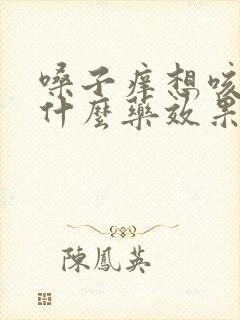 嗓子痒想咳
什麼藥效果
陳鳳英